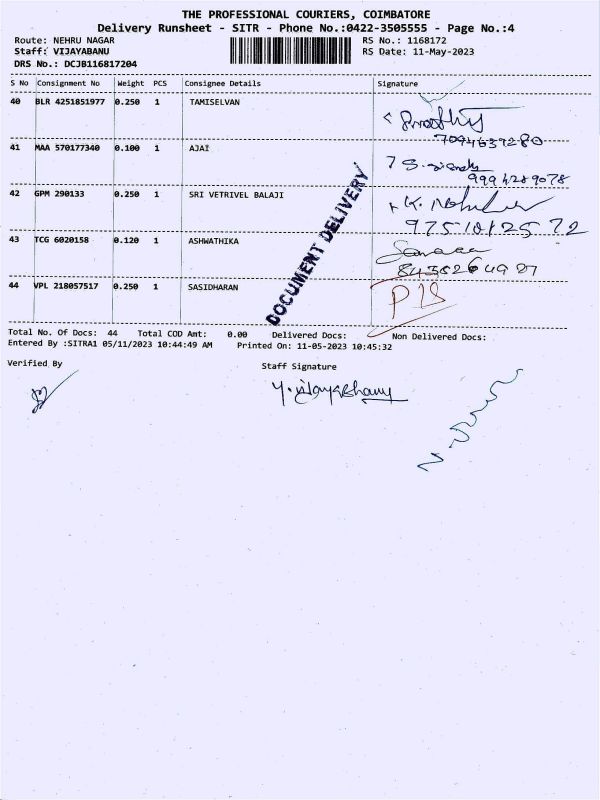 THE PROFESSIONAL COURIERS, COIMBATORE
Delivery Runsheet - SITR - Phone No.:0422-3505555 - Page No.:4
Route: NEHRU NAGAR RS No.: 1168172
Staff: VIJAYABANU RS Date: 11-May-2023
DRS No.: DCJB116817204
S No Consignment No Weight PCS Consignee Details Signature
40 BLR 4251851977 0.250 1 TAMISELVAN
7094639280
41 MAA 570177340 0.100 1 AJAI
9994289078
42 GPM 290133 0.250 1 SRI VETRIVEL BALAJI
43 TCG 6020158 0.120 1 ASHWATHIKA
44 VPL 218057517 0.250 1 SASIDHARAN
DOCUMENT DELIVERY
Total No. Of Docs: 44 Total COD Amt: 0.00 Delivered Docs: Non Delivered Docs:
Entered By :SITRA1 05/11/2023 10:44:49 AM Printed On: 11-05-2023 10:45:32
Verified By Staff Signature